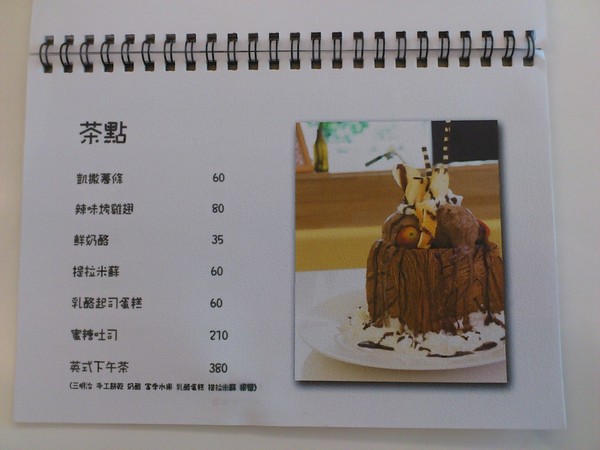 茶點
凱撒薯條 60
辣味烤雞翅 80
鮮奶酪 35
提拉米蘇 60
乳酪起司蛋糕 60
蜜糖吐司 210
英式下午茶 380
(三明治 手工餅乾 奶酪 當季水果 乳酪蛋糕 提拉米蘇